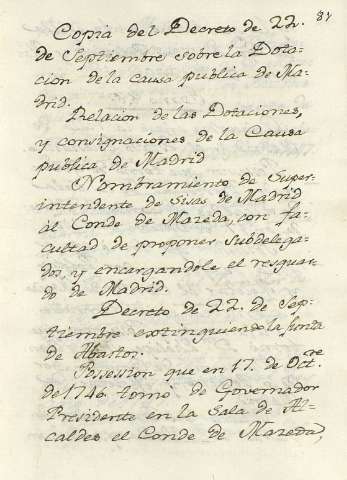 81
Copia del Decreto de 22.
de Septiembre sobre la Dota=
cion de la causa publica de Ma=
drid.
Relacion de las Dotaciones,
y consignaciones de la Causa
publica de Madrid
Nombramiento de Super=
intendente de Sisas de Madrid
al Conde de Mazeda, con fa=
cultad de proponer subdelega=
dos, y encargandole el resguar=
do de Madrid.
Decreto de 22. de Sep=
tiembre extinguiendo la Junta
de Abastos.
Possession que en 17. de Octre.
de 1746. tomó de Governador
Presidente en la Sala de Al=
caldes el Conde de Mazeda,